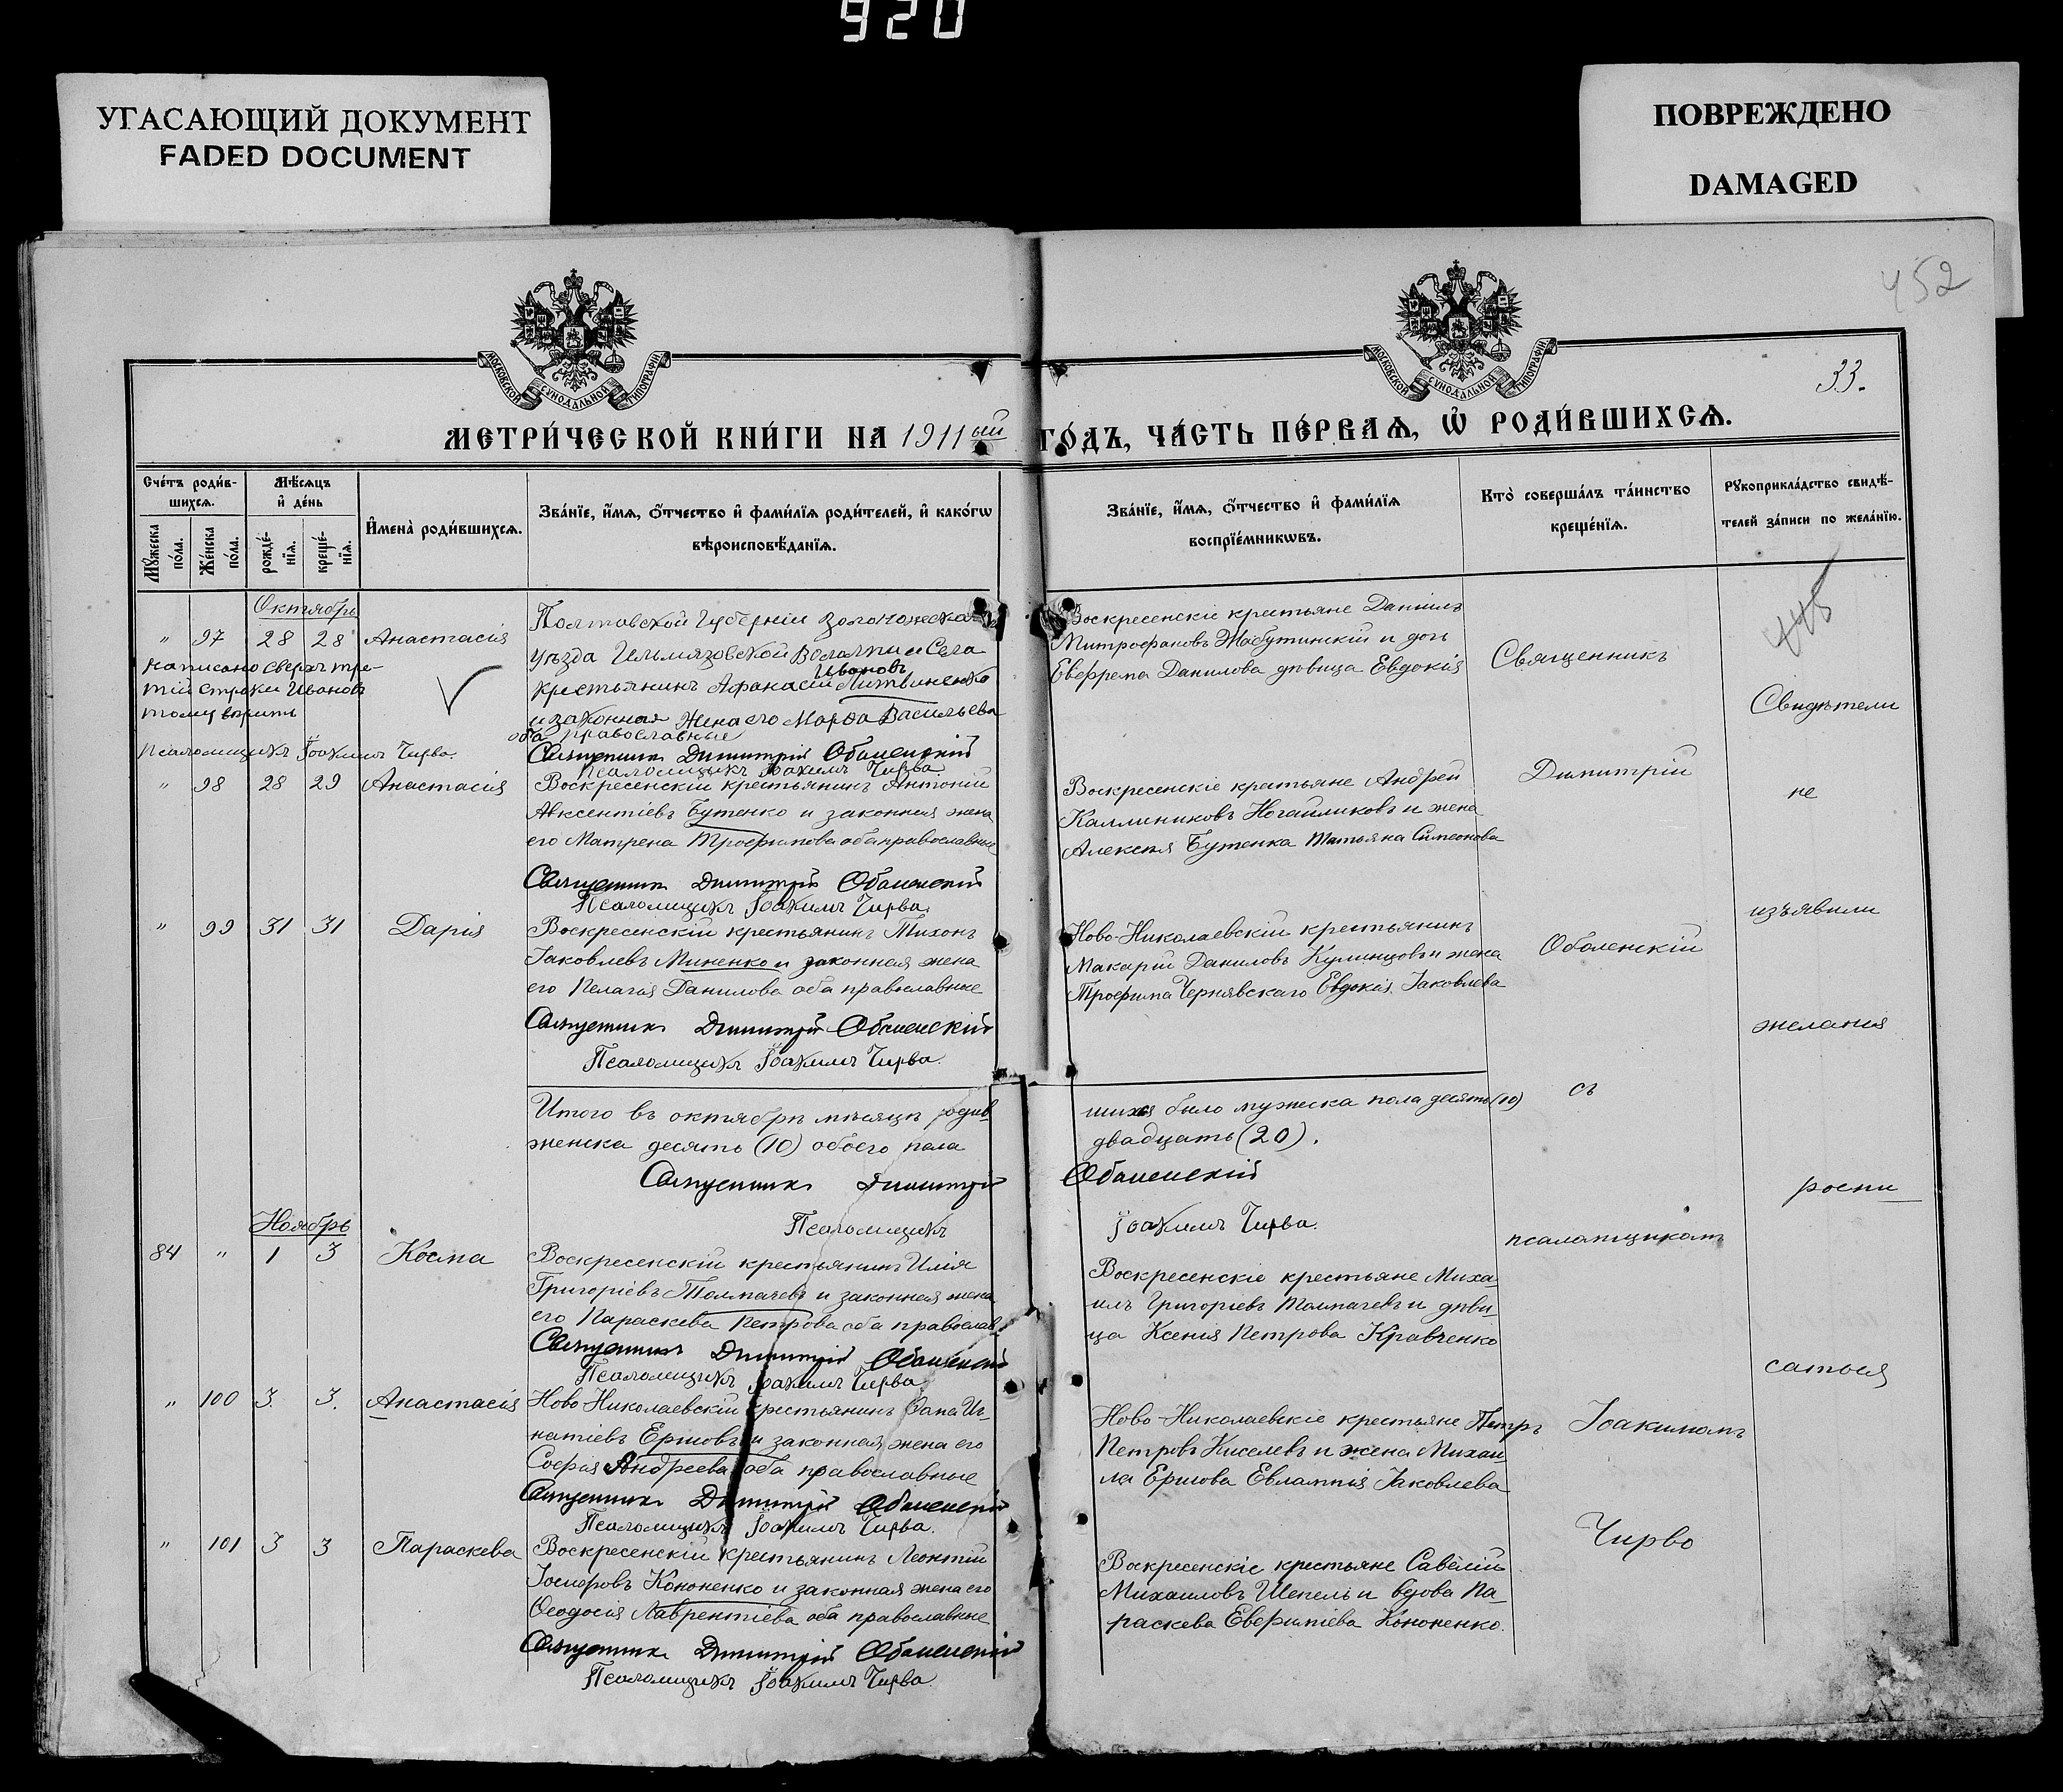 920
УГАСАЮЩИЙ ДОКУМЕНТ
FADED DOCUMENT
ПОВРЕЖДЕНО
DAMAGED
452
33.
МОСКОВСКОЙ СѴНОДАЛЬНОЙ ТИПОГРАФІИ
МОСКОВСКОЙ СѴНОДАЛЬНОЙ ТИПОГРАФІИ
МЕТРИ́ЧЕСКОЙ КНИ́ГИ НА 1911ый ГО́ДЪ, ЧА́СТЬ ПЕ́РВАѦ, Ѡ҆ РОДИ́ВШИХСѦ.
Сче́тъ роди́в-
шихсѧ.
Мѣ́сѧцъ
и҆ де́нь
Мꙋ́жеска
по́ла.
Же́нска
по́ла.
рожде́-
нїѧ.
креще́-
нїѧ.
И҆мена̀ роди́вшихсѧ.
Зва́нїе, и҆́мѧ, ѻ҆́тчество и҆ фами́лїѧ роди́телей, и҆ како́гѡ
вѣроисповѣ́данїѧ.
Зва́нїе, и҆́мѧ, ѻ҆́тчество и҆ фами́лїѧ
воспрїе́мникѡвъ.
Кто̀ соверша́лъ та́инство
креще́нїѧ.
Рꙋкоприкла́дство свидѣ́-
телей за́писи по жела́нїю.
Октябрь
" 97 28 28 Анастасія
Полтавской Губерніи Золотоношска
уѣзда Ильмязовской Волости и Села
Ивановъ
крестьянинъ Афанасій Литвиненко
и законная жена его Марѳа Васильева
оба православные
Священникъ Димитрій Оболенскій
Псаломщикъ Іоакимъ Чирва
написано сверхъ тре-
тій строки Ивановъ
тому вѣрить
Псаломщикъ Іоакимъ Чирва.
Воскресенскіе крестьяне Даніилъ
Митрофановъ Жабутинскій и дочь
Евфрема Данилова дѣвица Евдокія
" 98 28 29 Анастасія
Воскресенскій крестьянинъ Антоній
Авксентіевъ Бутенко и законная жена
его Матрена Трофимова оба православные
Священникъ Димитрій Оболенскій
Псаломщикъ Іоакимъ Чирва.
Воскресенскіе крестьяне Андрей
Каллиниковъ Ногайликовъ и жена
Алексѣя Бутенка Татьяна Симеонова
" 99 31 31 Дарія
Воскресенскій крестьянинъ Тихонъ
Іаковлевъ Миненко и законная жена
его Пелагія Данилова оба православные
Священникъ Димитрій Оболенскій
Псаломщикъ Іоакимъ Чирва.
Ново-Николаевскій крестьянинъ
Макарій Даниловъ Кулинцовъ и жена
Трофима Чернявскаго Евдокія Іаковлева
Итого въ октябрѣ мѣсяцѣ родив-
шихся было мужеска пола десять (10)
женска десять (10) обоего пола
двадцать (20).
Священникъ Димитрій Оболенскій
Псаломщикъ Іоакимъ Чирва.
Ноябрь
84 " 1 3 Косма
Воскресенскій крестьянинъ Илія
Григоріевъ Толмачевъ и законная жена
его Параскева Петрова оба православ
Священникъ Димитрій Оболенскій
Псаломщикъ Іоакимъ Чирва
Воскресенскіе крестьяне Миха-
илъ Григоріевъ Толмачевъ и дѣви-
ца Ксенія Петрова Кравченко
" 100 3. 3. Анастасія
Ново Николаевскій крестьянинъ Иг-
натіевъ Ершовъ и законная жена его
Софія Андреева оба православные
Священникъ Димитрій Оболенскій
Псаломщикъ Іоакимъ Чирва.
Ново-Николаевскіе крестьяне Петръ
Петровъ Киселевъ и жена Михаи-
ла Ершова Евлампія Іаковлева
" 101 3 3 Параскева
Воскресенскій крестьянинъ Леонтій
Іосифовъ Кононенко и законная жена его
Ѳеодосія Лаврентіева оба православные
Священникъ Димитрій Оболенскій
Псаломщикъ Іоакимъ Чирва.
Воскресенскіе крестьяне Савелій
Михаиловъ Шепель и вдова Па-
раскева Евфиміева Кононенко.
Священникъ
Димитрій
Оболенскій
съ
псаломщикомъ
Іоакимомъ
Чирво
Свидѣтели
не
изъявили
желанія
роспи
саться